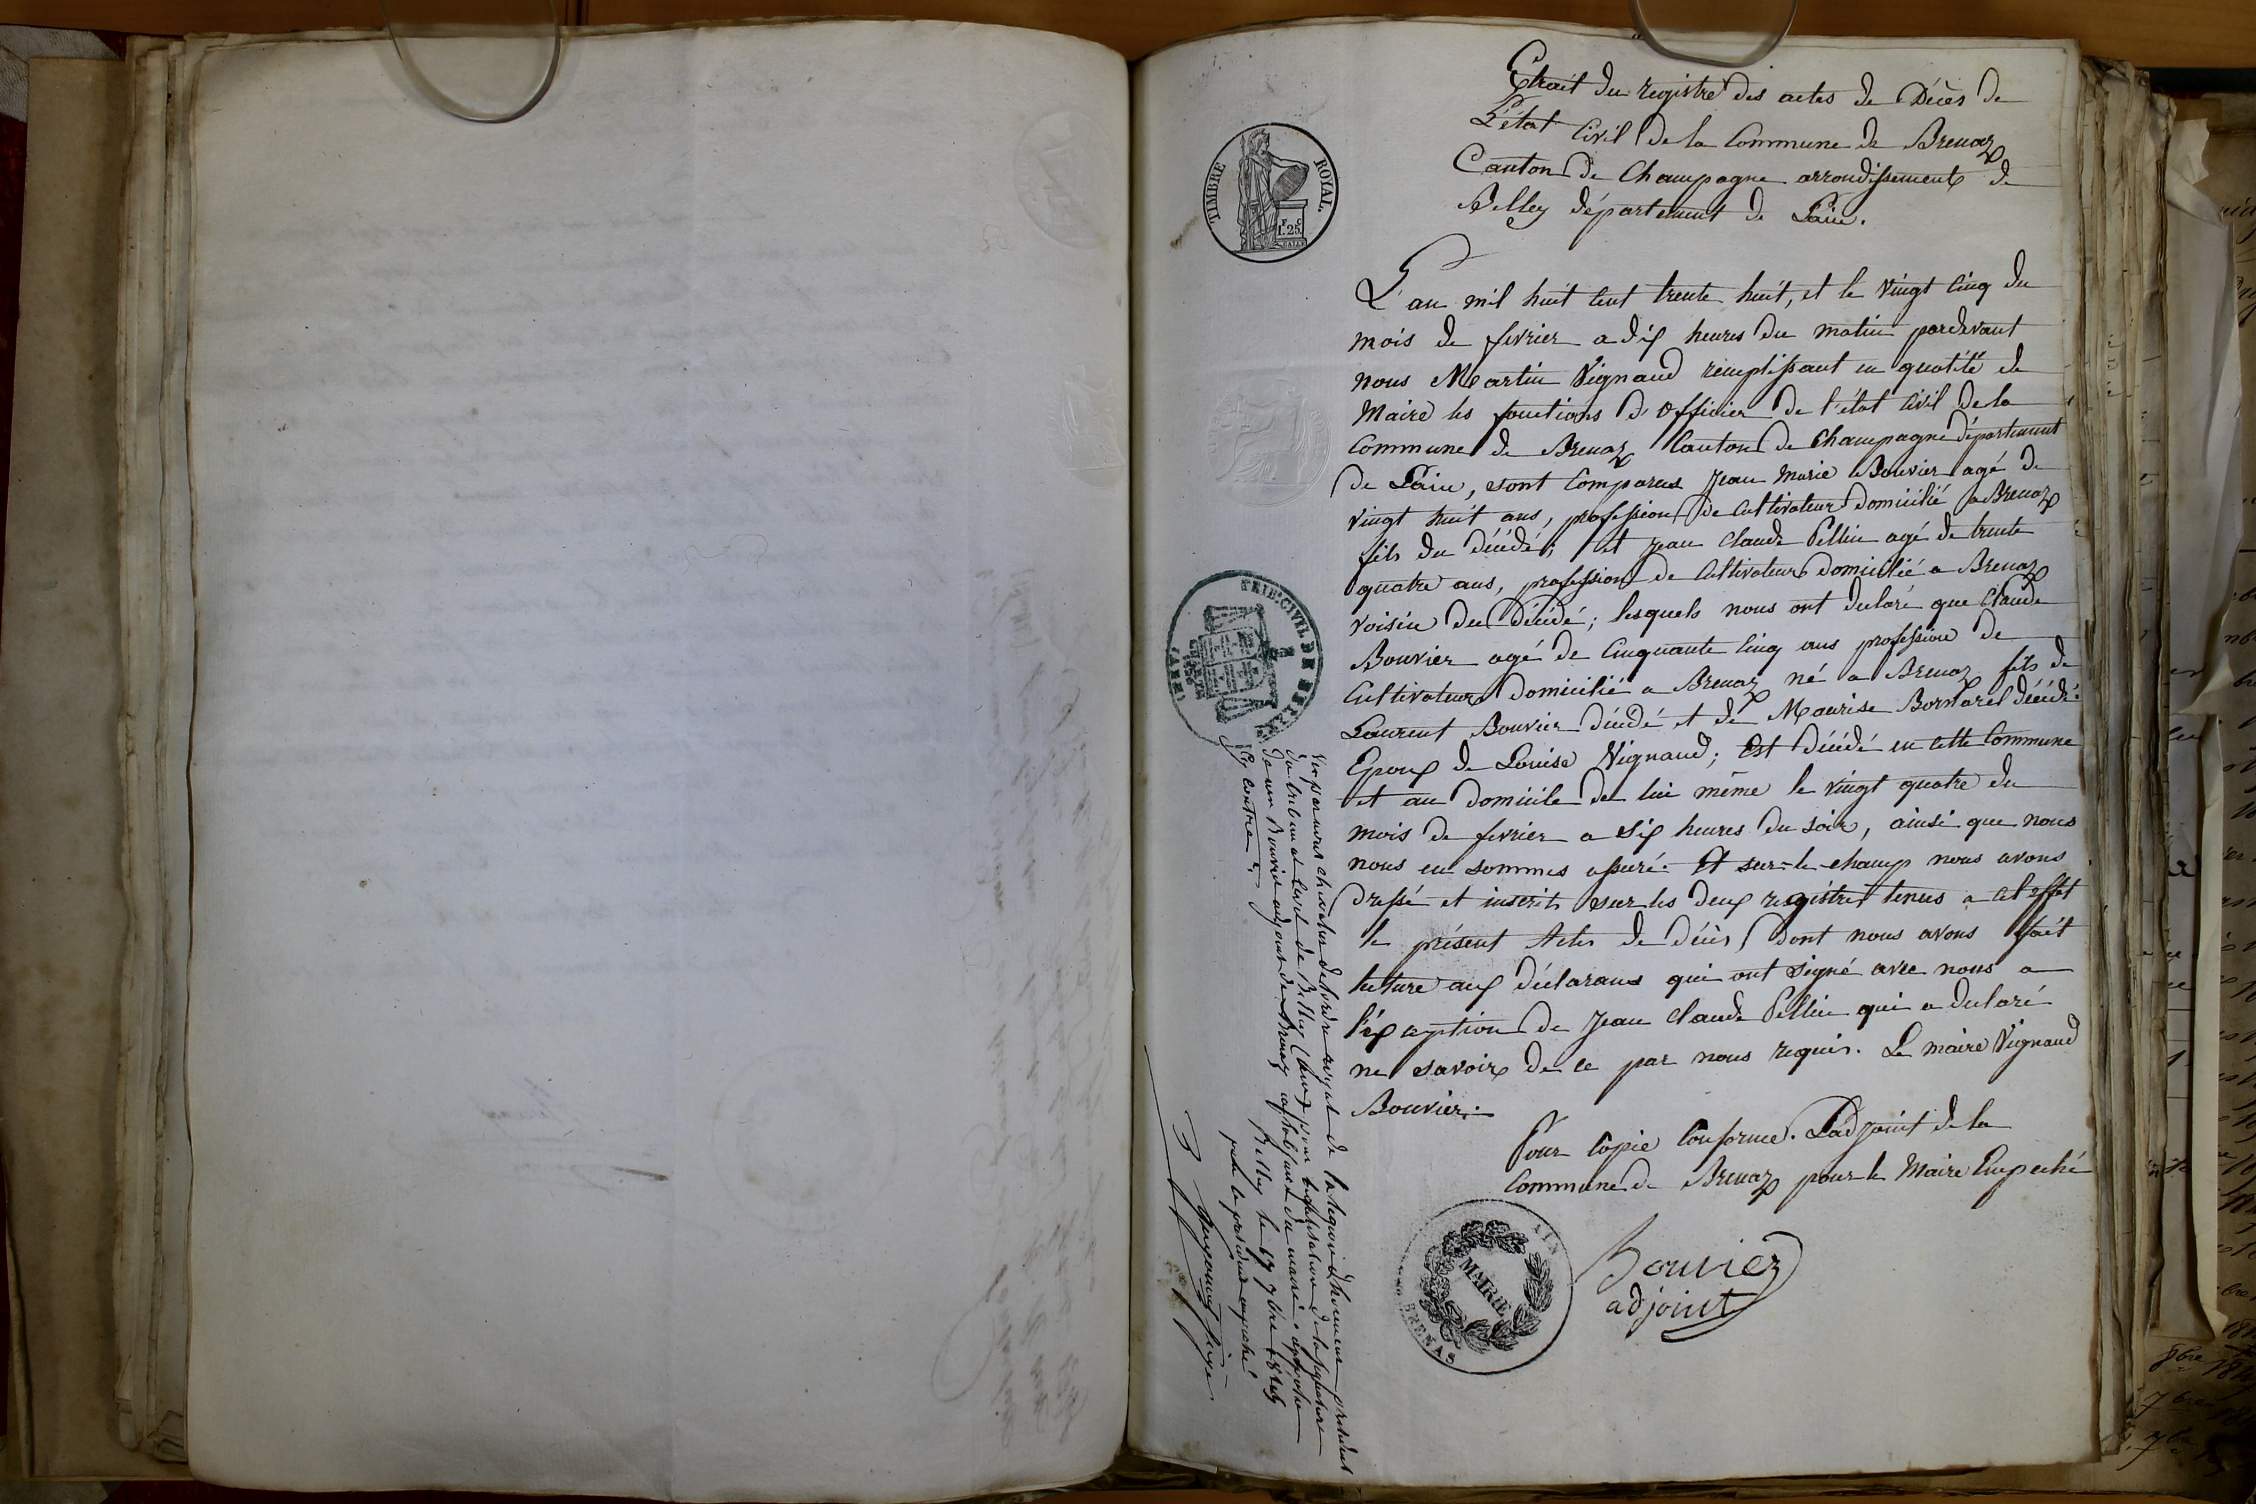 Extrait du registre des actes de Décès de
L'état Civil de la Commune de Brenaz
Canton de Champagne arrondissement de
Belley département de L'ain.
TIMBRE ROYAL
F. C.
1.25.
L'an mil huit cent trente huit, et le vingt cinq du
mois de fevrier a dix heures du matin pardevant
nous Martin Vignaud remplissant en qualité de
Maire les fonctions d'officier de l'état Civil de la
Commune de Brenaz Canton de Champagne département
de L'ain, sont Comparus Jean Marie Bouvier agé de
vingt huit ans, profession de Cultivateur domicilié a Brenaz
fils du décédé; et Jean Claude Pellin agé de trente
quatre ans, profession de Cultivateur domicilié a Brenaz
voisin du décédé; lesquels nous ont declaré que Claude
Bouvier agé de Cinquante Cinq ans profession de
Cultivateur domicilié a Brenaz né a Brenaz fils de
Laurent Bouvier décédé et de Maurise Bornarel décédé
Epoux de Louise Vignaud; Est décédé en cette Commune
et au domicile de lui même le vingt quatre du
mois de fevrier a six heures du soir, ainsi que nous
nous en sommes assuré. Et sur-le-champ nous avons
dressé et inscrit sur les deux registres tenus a cet effet
le présent Acte de décès dont nous avons fait
lecture aux déclarans qui ont signé avec nous a
l'éxception de Jean Claude Pellin qui a declaré
ne savoir de ce par nous requis. Le maire Vignaud
Bouvier.
Pour Copie Conforme. L'adjoint de la
Commune de Brenaz pour le Maire Empeché
Bouvier
adjoint
MAIRIE
BRENAS
AIN
TRIB. CIVIL DE
Vu par nous chevalier de l'ordre royal de la legion d'honneur president
du tribunal civil de Belley (Ain) pour legalisation de la signature
de mr Bouvier adjoint de Brenaz en absence du maire apposée
Cy contre.
Belley le 17 7bre 18
pour le president empeché
juge